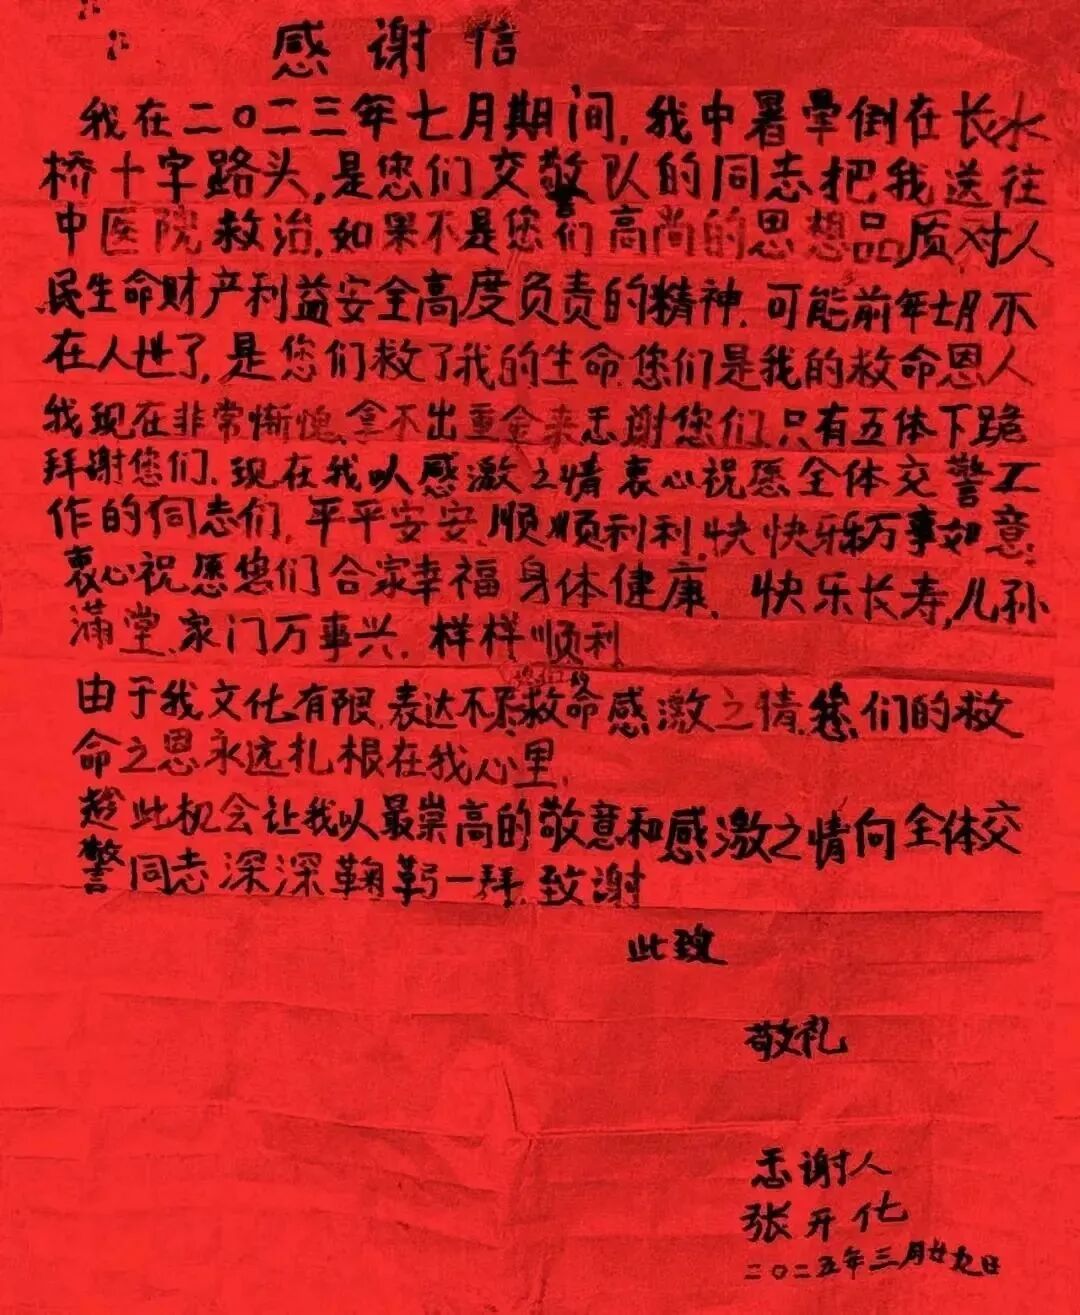 感谢信
我在二〇二三年七月期间,我中暑晕倒在长水
桥十字路头,是您们交警队的同志把我送往
中医院救治,如果不是您们高尚的思想品质,对人
民生命财产利益安全高度负责的精神,可能前年七月不
在人世了,是您们救了我的生命.您们是我的救命恩人
我现在非常惭愧,拿不出重金来忎谢您们,只有五体下跪
拜谢您们.现在我以感激之情衷心祝愿全体交警工
作的同志们,平平安安,顺顺利利,快快乐乐万事如意.
衷心祝愿您们合家幸福身体健康.快乐长寿,儿孙
满堂.家门万事兴.样样顺利
由于我文化有限,表达不尽救命感激之情.您们的救
命之恩永远扎根在我心里.
趁此机会让我以最崇高的敬意和感激之情向全体交
警同志深深鞠躬一拜.致谢
此致
敬礼
忎谢人
张开化
二〇二五年三月廿九日